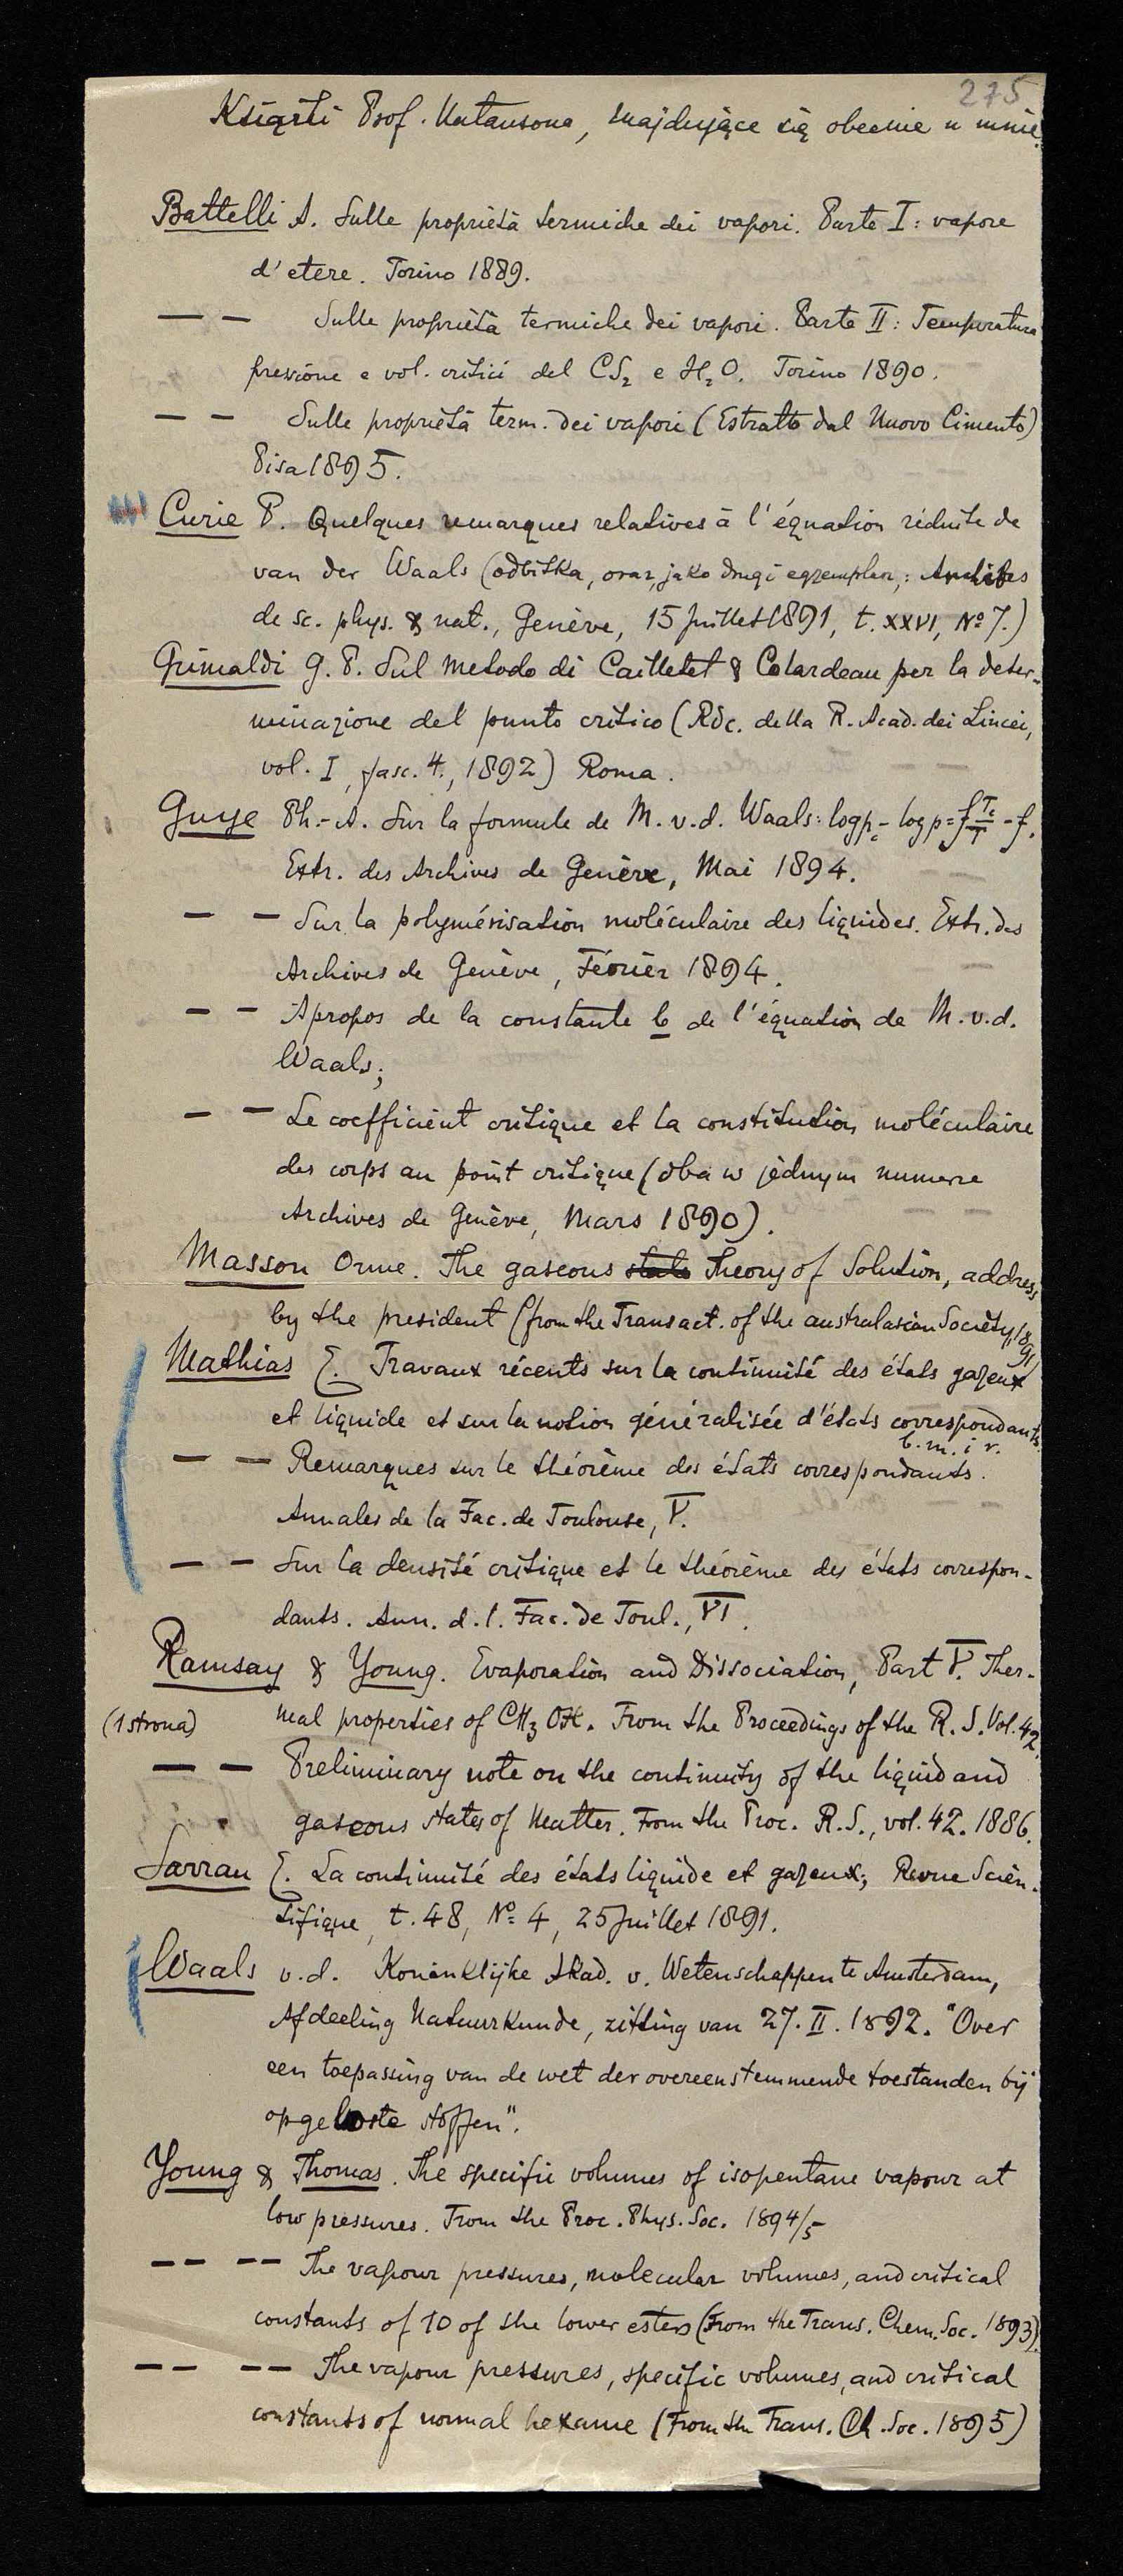 275
Książki Prof. Natansona, znajdujące się obecnie u mnie.
Battelli A. Sulle proprietà termiche dei vapori. Parte I: vapore
d'etere. Torino 1889.
— — Sulle proprietà termiche dei vapori. Parte II: Temperatura
pressione e vol. critici del CS₂ e H₂O. Torino 1890.
— — Sulle proprietà term. dei vapori (Estratto dal Nuovo Cimento)
Pisa 1895.
Curie P. Quelques remarques relatives à l'équation réduite de
van der Waals (odbitka, oraz, jako drugi egzemplarz,: Archives
de sc. phys. & nat., Genève, 15 Juillet 1891, t. XXVI, Nº 7.)
Grimaldi G. P. Sul metodo di Cailletet & Colardeau per la deter-
minazione del punto critico (Rdc. della R. Acad. dei Lincei,
vol. I, fasc. 4., 1892) Roma.
Guye Ph.-A. Sur la formule de M. v.d. Waals: log p_c - log p = f T_c/T - f.
Extr. des Archives de Genève, Mai 1894.
— — Sur la polymérisation moléculaire des liquides. Extr. des
Archives de Genève, Février 1894.
— — Apropos de la constante b de l'équation de M. v.d.
Waals;
— — Le coefficient critique et la constitution moléculaire
des corps au point critique (oba w jednym numerze
Archives de Genève, Mars 1890).
Masson Orme. The gaseous state Theory of Solution, address
by the president (from the Transact. of the australasian Society, 1891)
Mathias E. Travaux récents sur la continuité des états gazeux
et liquide et sur la notion généralisée d'états correspondants.
b. m. i r.
— — Remarques sur le théorème des états correspondants.
Annales de la Fac. de Toulouse, V.
— — Sur la densité critique et le théorème des états correspon-
dants. Ann. d. l. Fac. de Toul., VI.
Ramsay & Young. Evaporation and Dissociation, Part V. Ther-
(1 strona) mal properties of CH₃OH. From the Proceedings of the R. S. Vol. 42.
— — Preliminary note on the continuity of the liquid and
gaseous states of Matter. From the Proc. R. S., vol. 42. 1886.
Sarrau E. La continuité des états liquide et gazeux; Revue Scien-
tifique, t. 48, Nº 4, 25 Juillet 1891.
Waals v.d. Koninklijke Akad. v. Wetenschappen te Amsterdam,
Afdeeling Natuurkunde, zitting van 27. II. 1892. "Over
een toepassing van de wet der overeenstemmende toestanden bij
opgeloste stoffen".
Young & Thomas. The specific volumes of isopentane vapour at
low pressures. From the Proc. Phys. Soc. 1894/5
— — — — The vapour pressures, molecular volumes, and critical
constants of 10 of the lower esters (From the Trans. Chem. Soc. 1893).
— — — — The vapour pressures, specific volumes, and critical
constants of normal hexane (From the Trans. Ch. Soc. 1895)